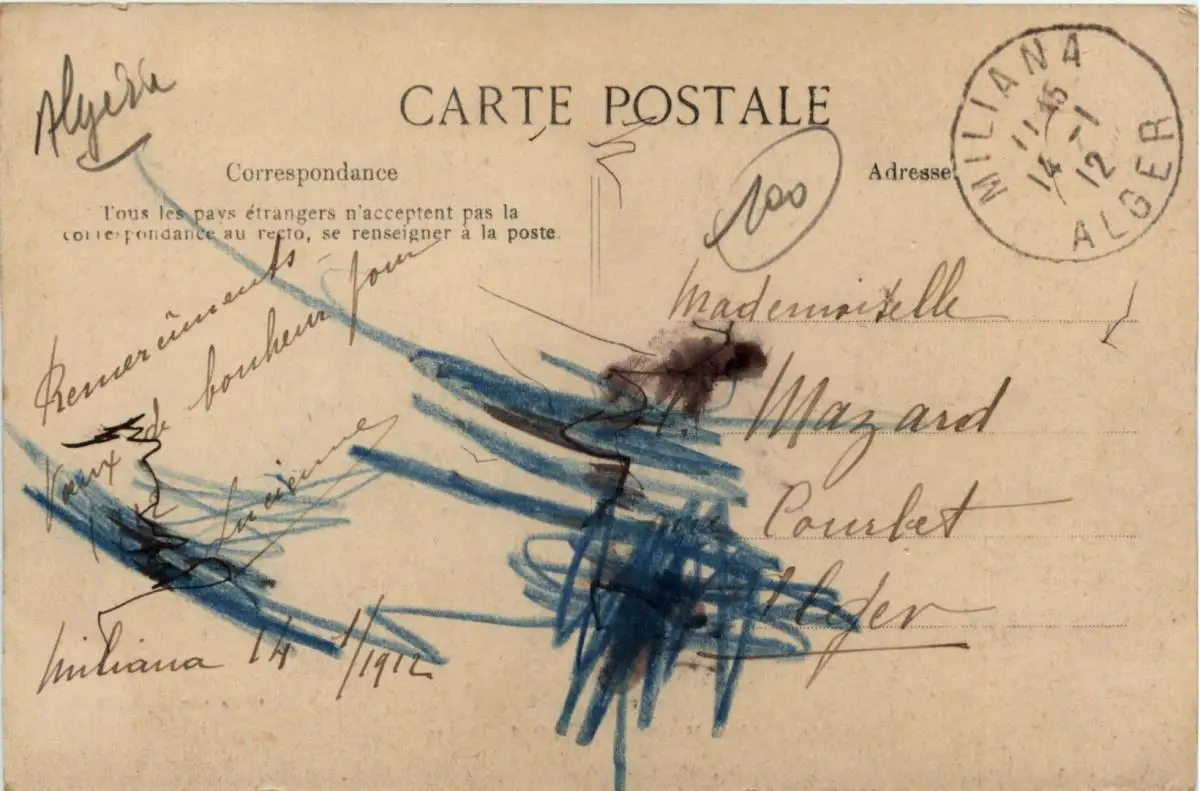 Algeria
CARTE POSTALE
Correspondance
Tous les pays étrangers n'acceptent pas la
correspondance au recto, se renseigner à la poste.
Remercîments
Vœux de bonheur pour
1912
Lucienne
Miliana 14 1/1912
100
Adresse
MILIANA
11 45
14 -1
12
ALGER
Mademoiselle
Mazard
rue Courbet
Alger